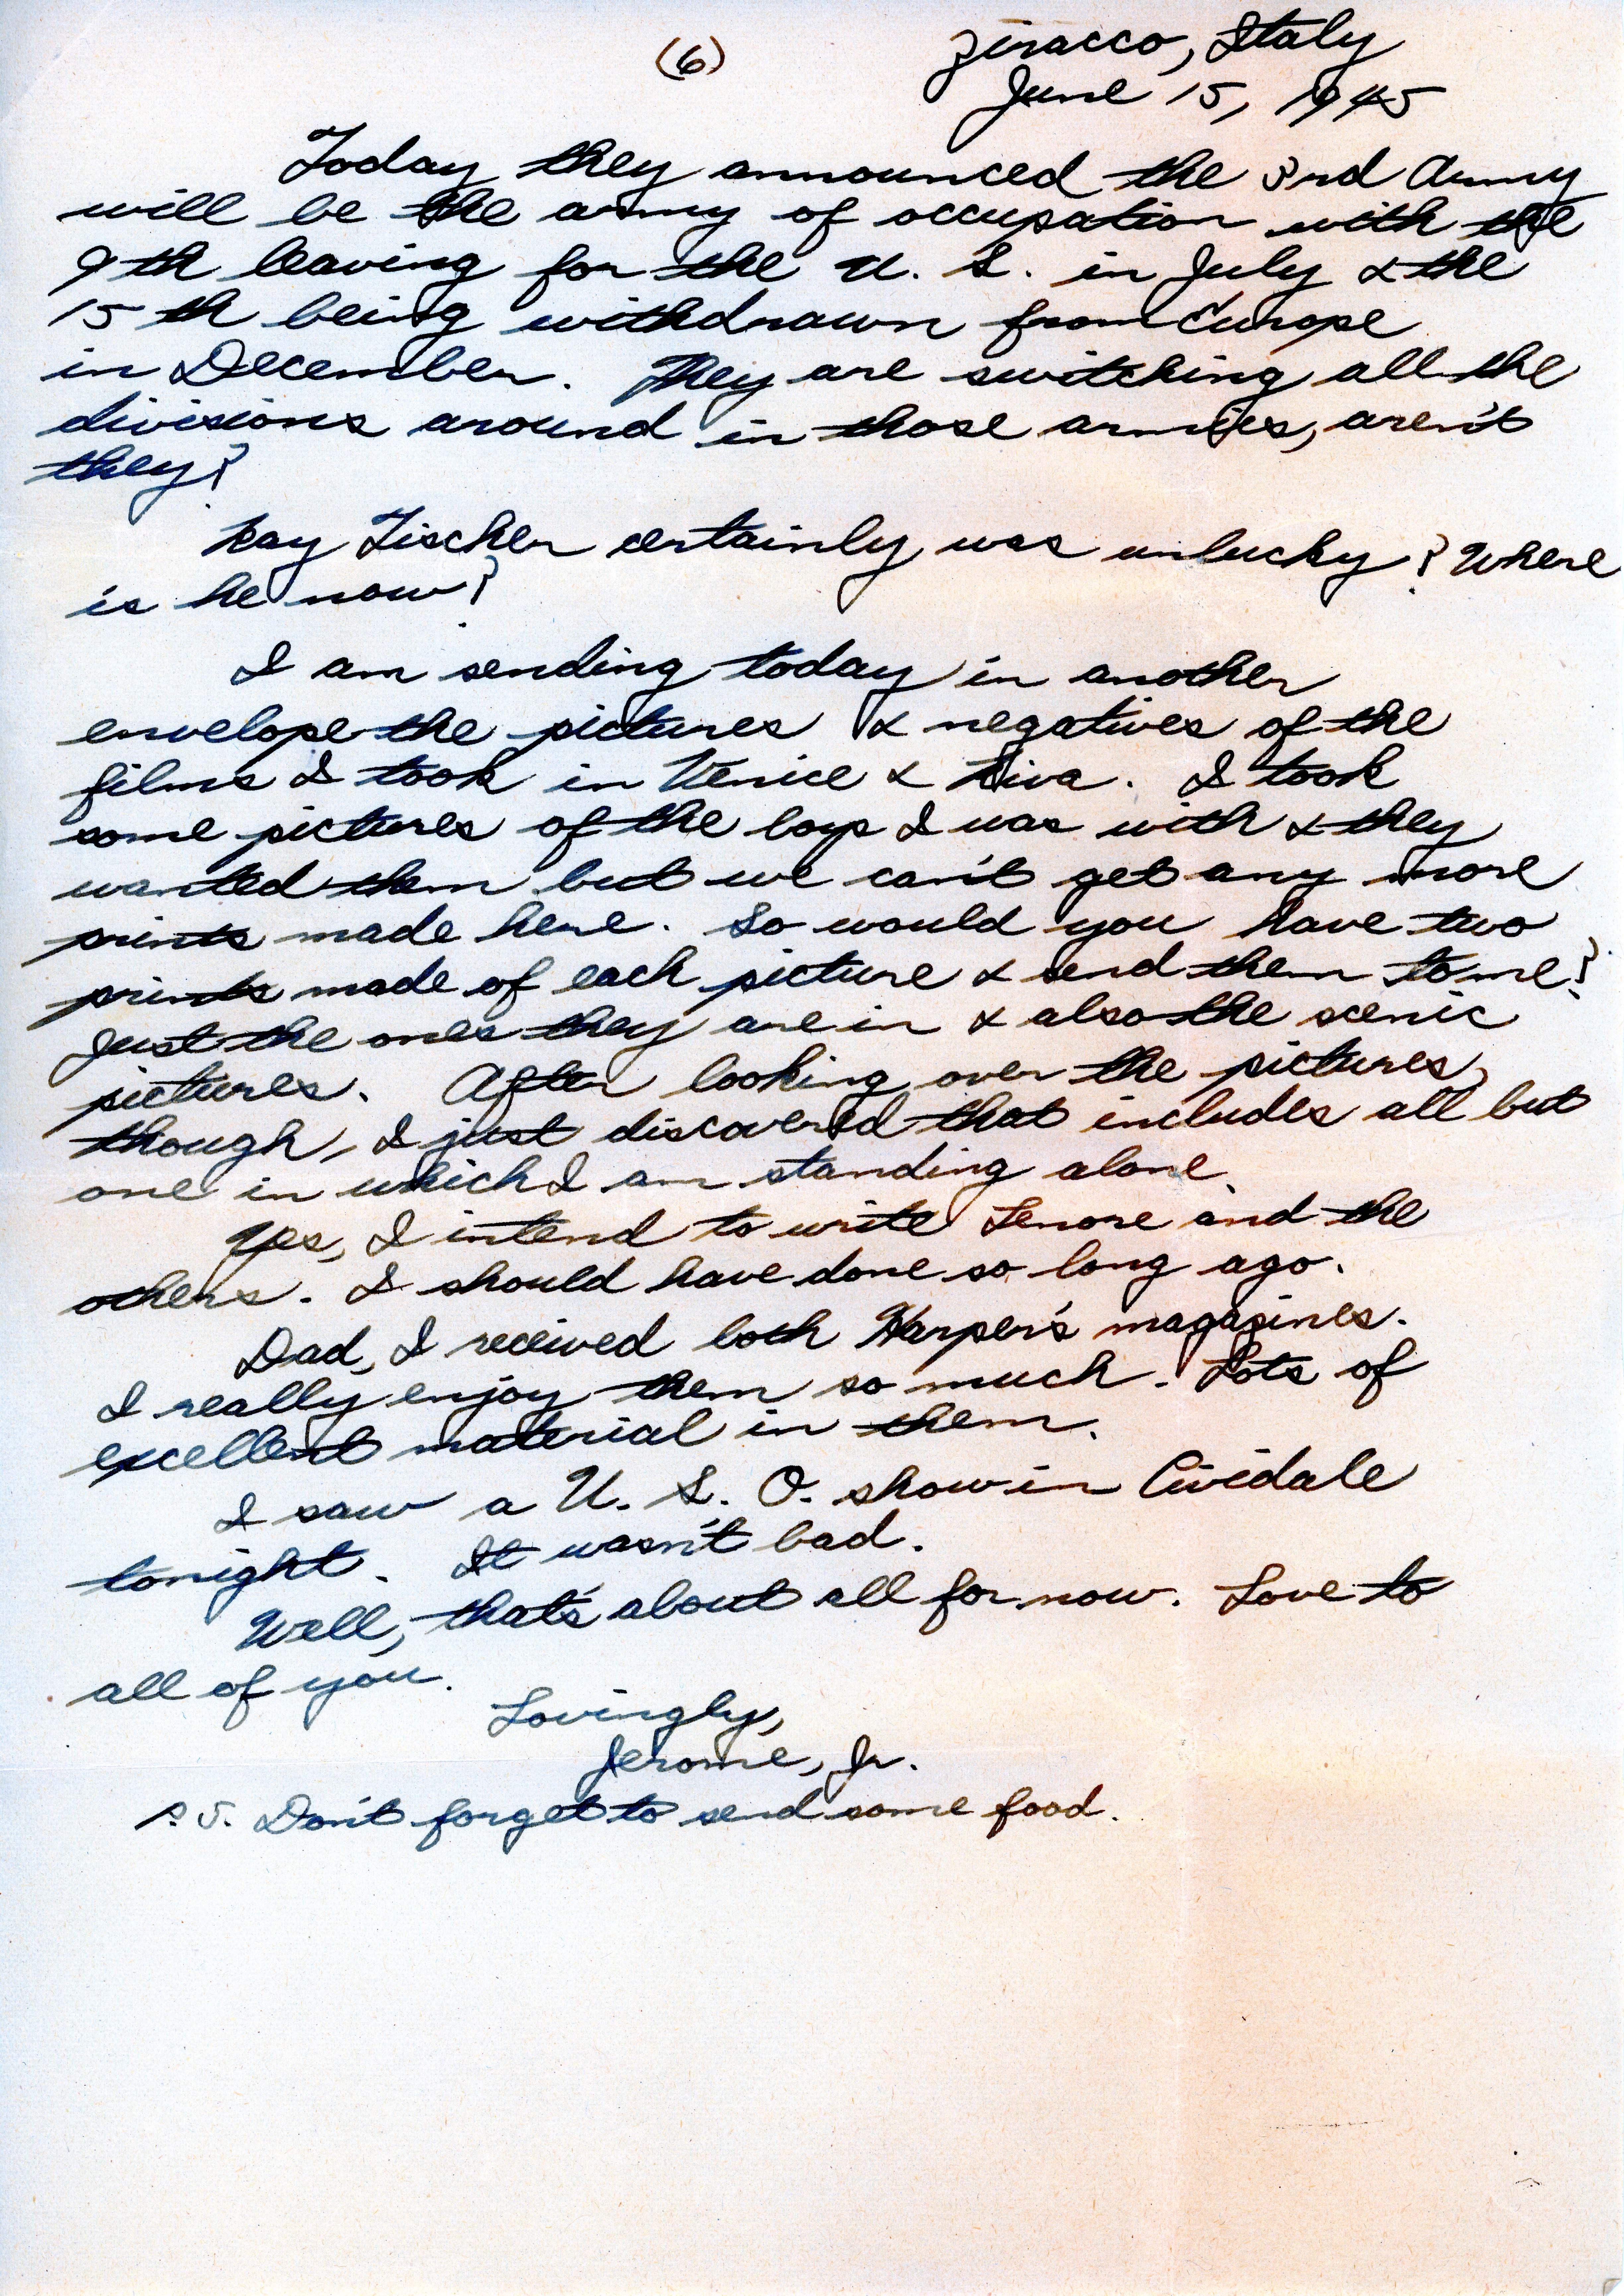 (6)
Ziracco, Italy
June 15, 1945
Today they announced the 3rd Army
will be the army of occupation with the
9th leaving for the U. S. in July & the
15th being withdrawn from Europe
in December. They are switching all the
divisions around in those armies, aren't
they?
Ray Fischer certainly was unlucky? Where
is he now?
I am sending today in another
envelope the pictures & negatives of the
films I took in Venice & Riva. I took
some pictures of the boys I was with & they
wanted them but we can't get any more
prints made here. So would you have two
prints made of each picture & send them to me?
Just the ones they are in & also the scenic
pictures. After looking over the pictures,
though, I just discovered that includes all but
one in which I am standing alone.
Yes, I intend to write Lenore and the
others. I should have done so long ago.
Dad, I received both Harper's magazines.
I really enjoy them so much. Lots of
excellent material in them.
I saw a U. S. O. show in Cividale
tonight. It wasn't bad.
Well, that's about all for now. Love to
all of you.
Lovingly,
Jerome, Jr.
P.S. Don't forget to send some food.